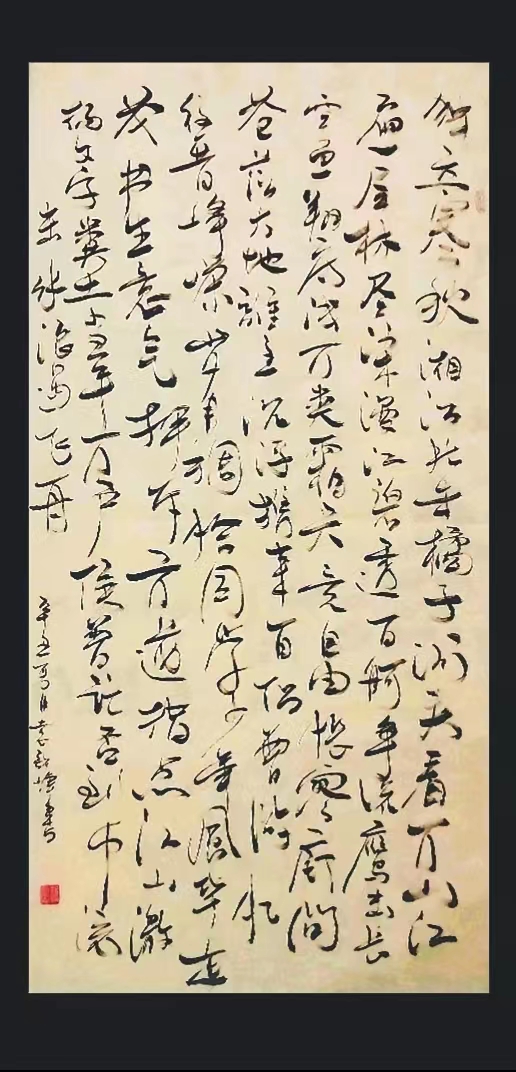 独立寒秋湘江北去橘子洲头看万山红
遍层林尽染漫江碧透百舸争流鹰击长
空鱼翔浅底万类霜天竞自由怅寥廓问
苍茫大地誰主沉浮携来百侣曾游忆
往昔峥嵘岁月稠恰同学少年风华正
茂书生意气挥斥方遒指点江山激
扬文字粪土当年万户侯曾记否到中流
击水浪遏飞舟
辛丑